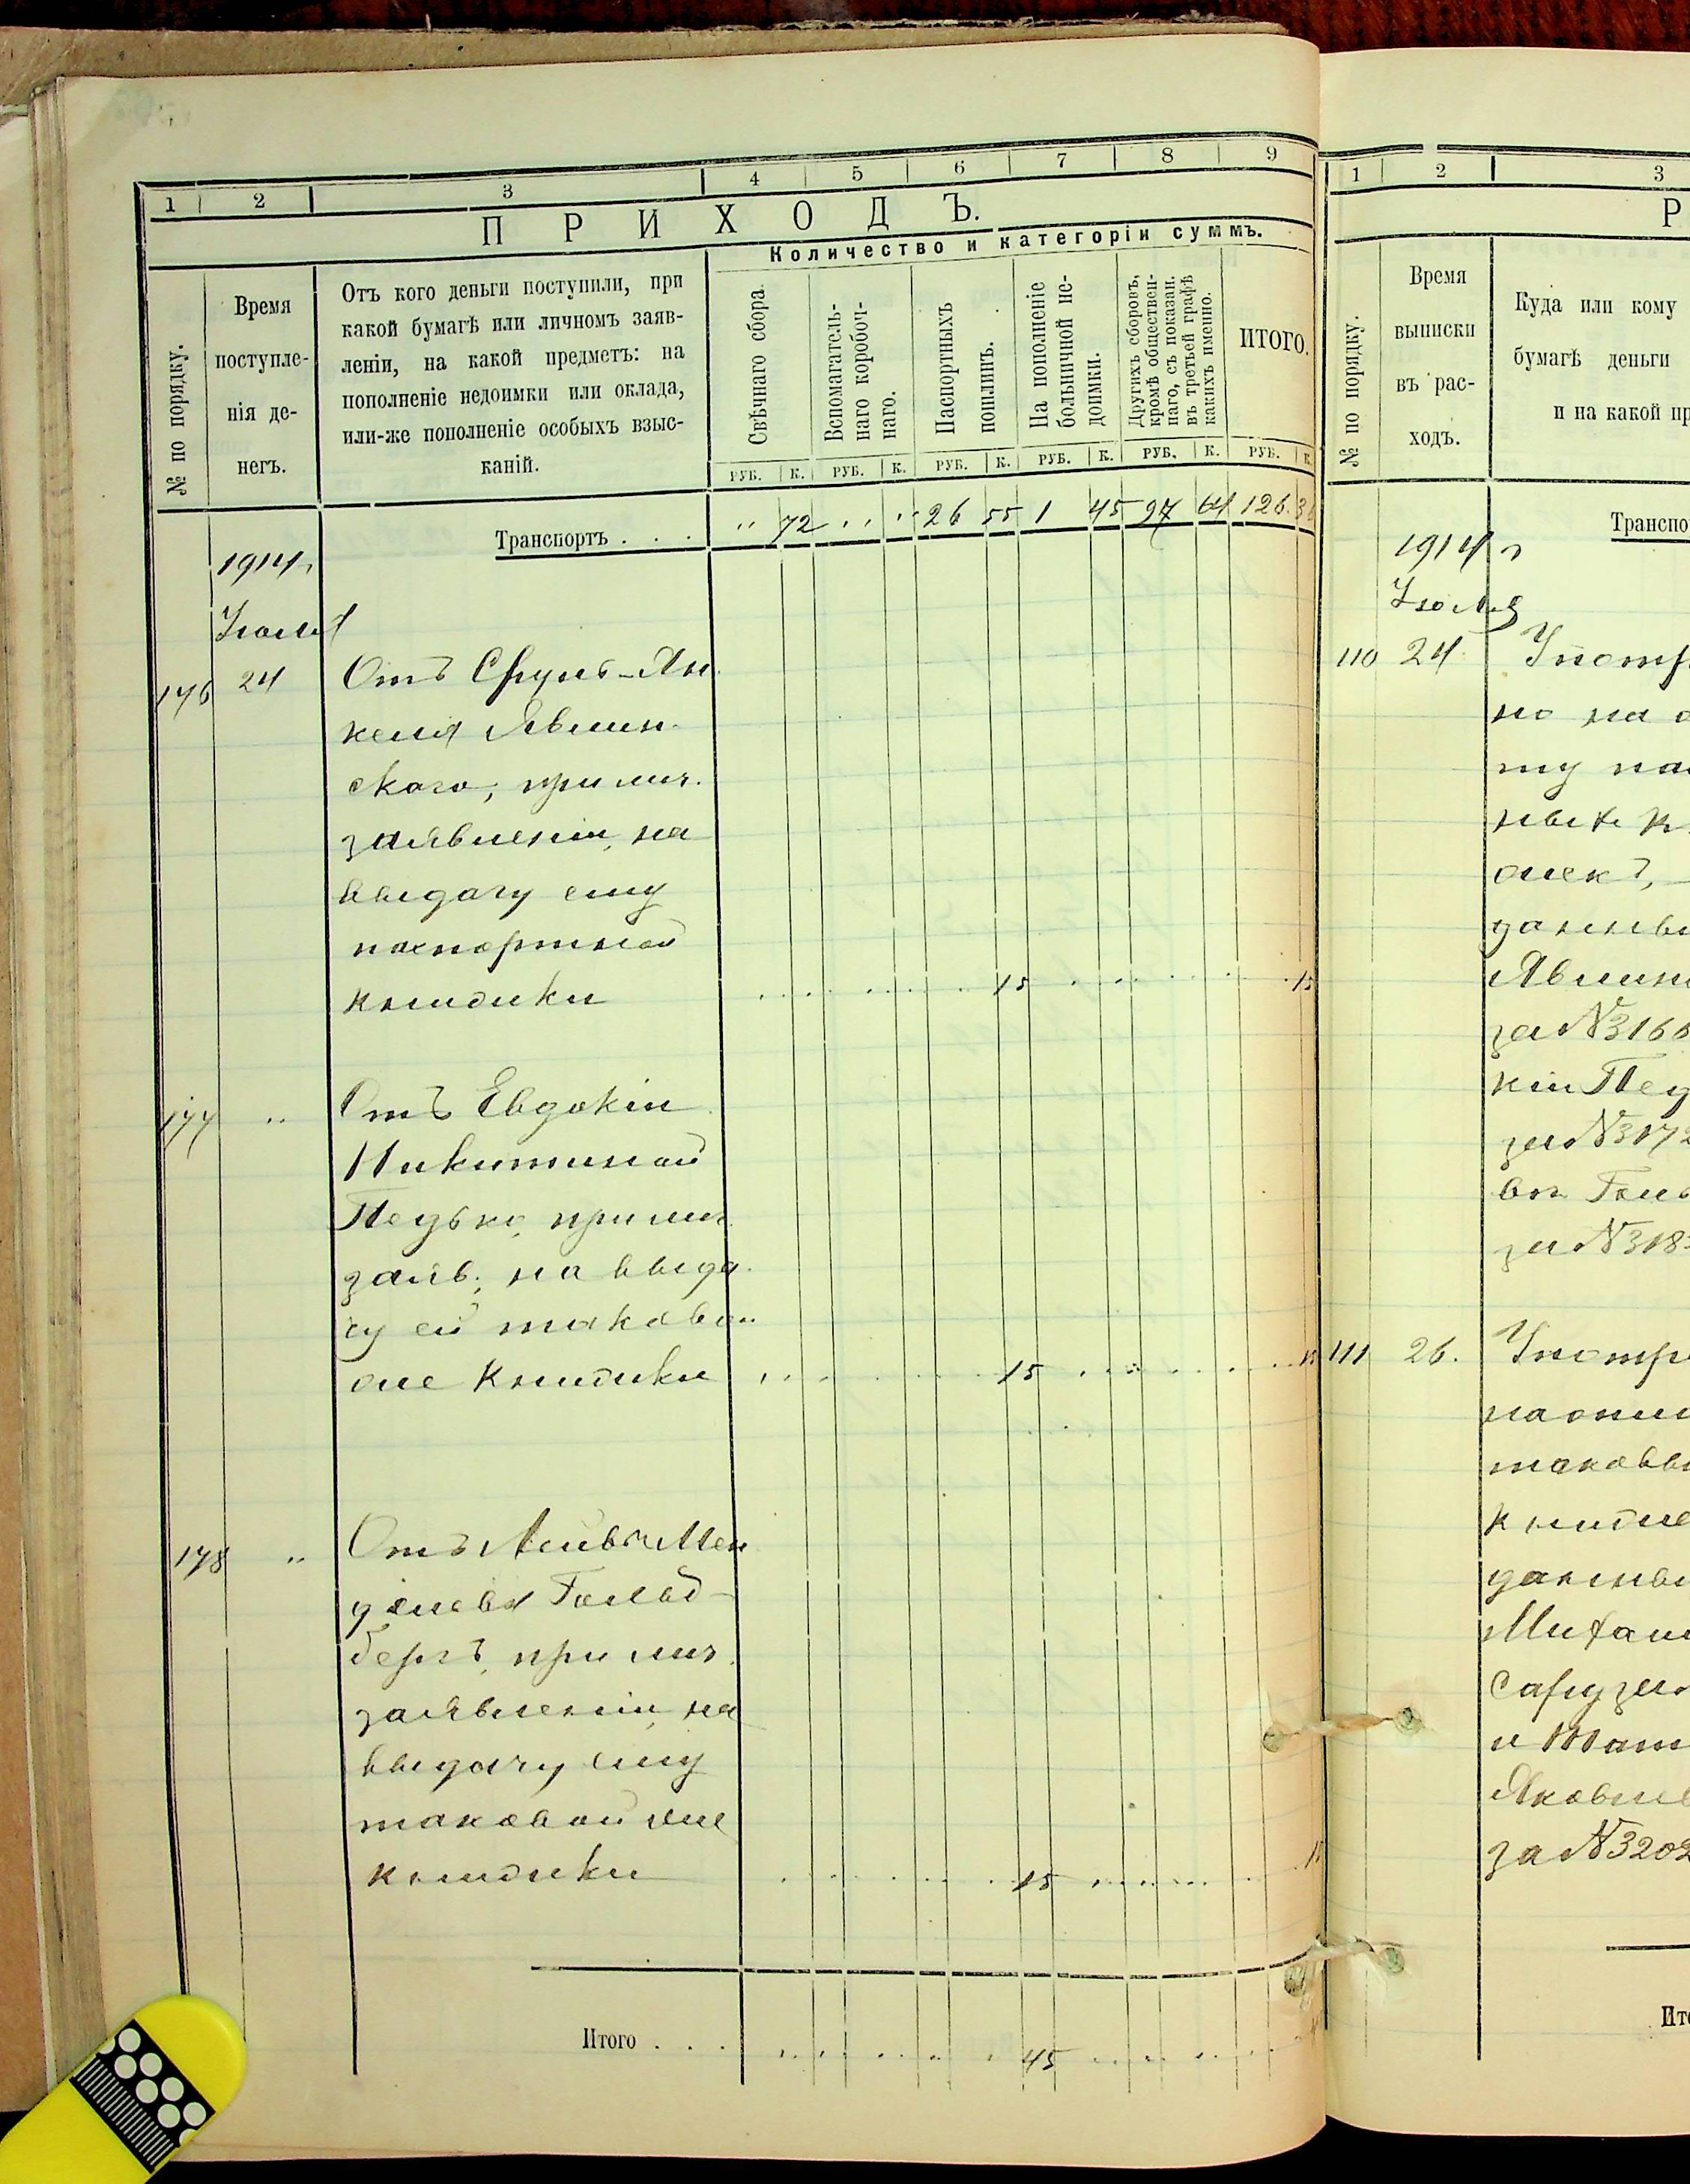 1 2 3 4 5 6 7 8 9
ПРИХОДЪ.
Количество и категоріи суммъ.
№ по порядку.
Время
поступле-
нія де-
негъ.
Отъ кого деньги поступили, при
какой бумагѣ или личномъ заяв-
леніи, на какой предметъ: на
пополненіе недоимки или оклада,
или-же пополненіе особыхъ взыс-
каній.
Свѣчнаго сбора.
Вспомагатель-
наго коробоч-
наго.
Паспортныхъ
пошлинъ.
На пополненіе
больничной не-
доимки.
Другихъ сборовъ,
кромѣ обществен-
наго, съ показан.
въ третьей графѣ
какихъ именно.
ИТОГО.
РУБ. К. РУБ. К. РУБ. К. РУБ. К. РУБ. К. РУБ. К.
Транспортъ . . . " 72 " " 26 55 1 45 97 64 126
1914 г
Іюля
176 24 Отъ Сруль-Ян
келя Явлин-
скаго, при лич.
заявленіи, на
выдачу ему
паспортной
книжки 15 15
177 " Отъ Евдокіи
Никитиной
Педько, при лич.
заяв., на выда-
чу ей таковой
же книжки 15 15
178 " Отъ Лейбы Мен
делева Гольд-
бергъ, при лич.
заявленіи, на
выдачу ему
таковой же
книжки 15 15
Итого . . . 45
1 2 3
Р
№ по порядку.
Время
выписки
въ рас-
ходъ.
Куда или кому
бумагѣ деньги
и на какой пр
Транспо
1914 г
Іюля
110 24 Употр
но на о
ту пас
ныхъ к
жекъ,
данны
Явлин
за № 316
кіи Пед
за № 317
вы Голь
за № 318
111 26. Употре
на опла
таковы
книже
данны
Михаи
Сару за
и
Яковле
за № 3202
Ито